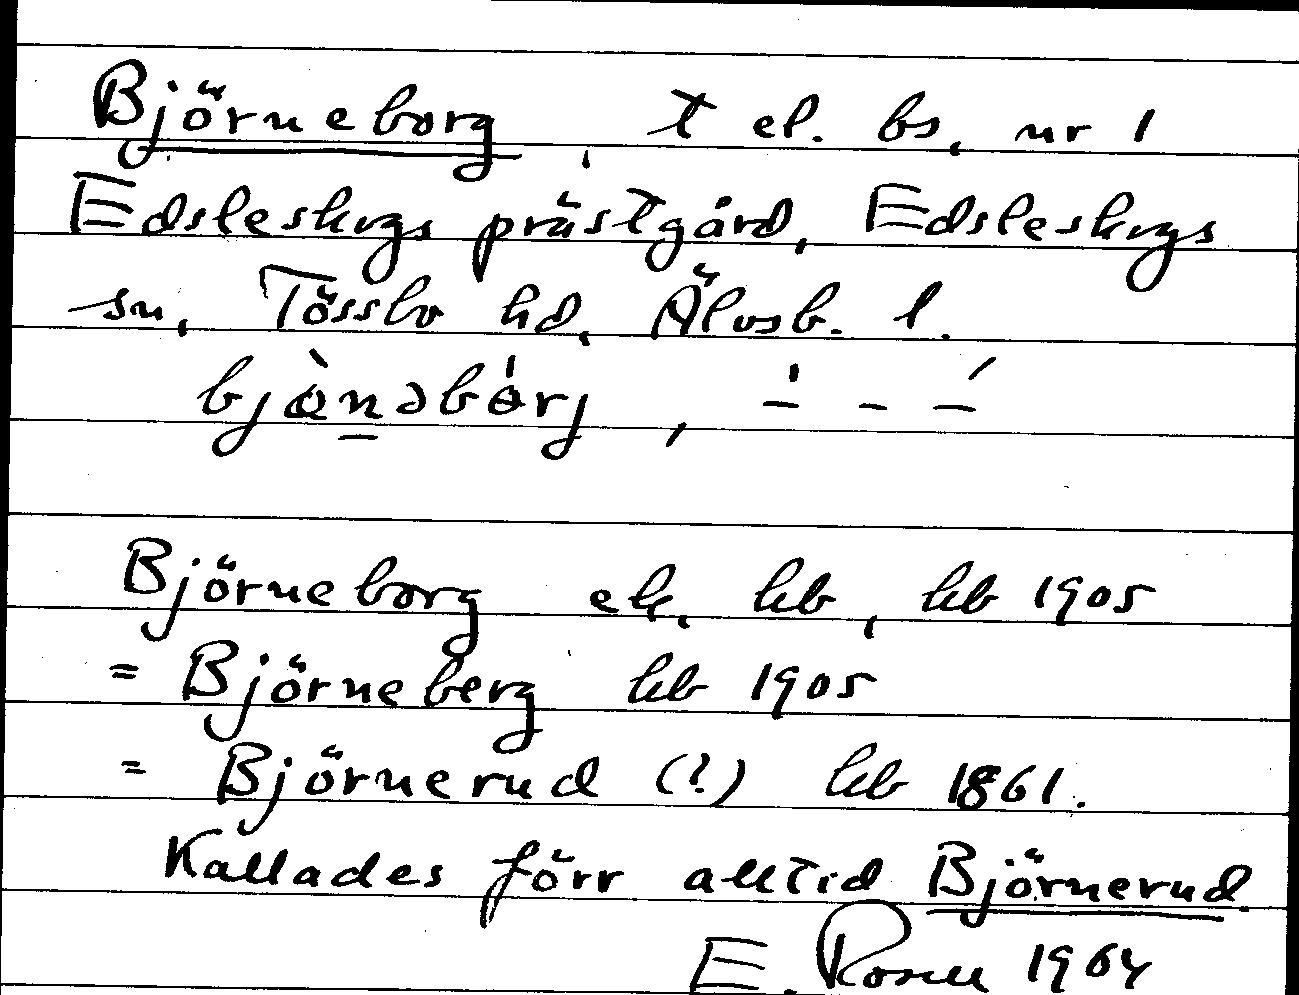 Björneborg, t el. bs, nr 1
Edsleskogs prästgård, Edsleskogs
sn, Tössbo hd, Älvsb. l.
bjø̀nəbórj, – – –
Björneborg ek, kb, kb 1905
= Björneberg kb 1905
= Björnerud (?) kb 1861.
Kallades förr alltid Björnerud.
E. Rosell 1964